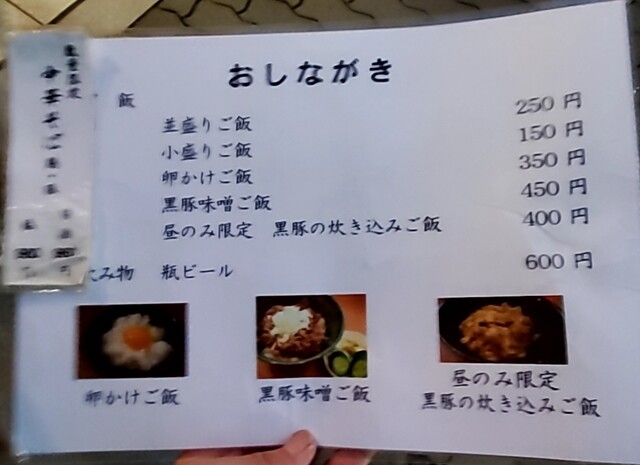 おしながき
ご飯
並盛りご飯 250 円
小盛りご飯 150 円
卵かけご飯 350 円
黒豚味噌ご飯 450 円
昼のみ限定 黒豚の炊き込みご飯 400 円
飲み物 瓶ビール 600 円
卵かけご飯
黒豚味噌ご飯
昼のみ限定
黒豚の炊き込みご飯
中華そば